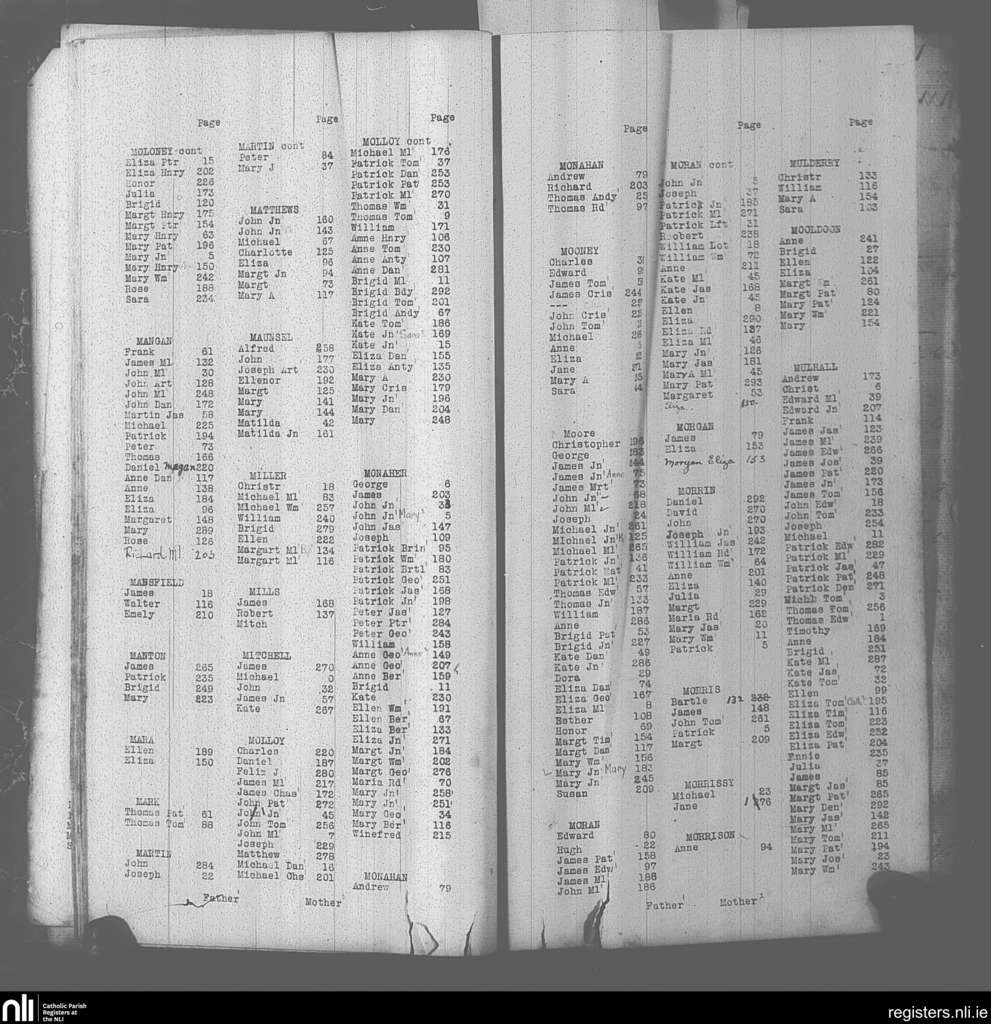 Page
MOLONEY cont
Eliza Ptr 15
Eliza Hnry 202
Honor 226
Julia 173
Brigid 120
Margt Hnry 175
Margt Ptr 154
Mary Hnry 63
Mary Pat 196
Mary Jn 5
Mary Hnry 150
Mary Wm 242
Rose 188
Sara 234
MANGAN
Frank 61
James Ml 132
John Ml 30
John Art 128
John Ml 248
John Dan 172
Martin Jas 58
Michael 225
Patrick 194
Peter 73
Thomas 166
Daniel Magan 220
Anne Dan 117
Anne 138
Eliza 184
Eliza 96
Margaret 148
Mary 289
Rose 126
Richard Ml 203
MANSFIELD
James 18
Walter 116
Emely 210
MANTON
James 265
Patrick 235
Brigid 249
Mary 223
MARA
Ellen 189
Eliza 150
MARK
Thomas Pat 61
Thomas Tom 88
MARTIN
John 284
Joseph 22
Father'
Page
MARTIN cont
Peter 84
Mary J 37
MATTHEWS
John Jn 160
John Jn 143
Michael 67
Charlotte 125
Eliza 96
Margt Jn 94
Margt 73
Mary A 117
MAUNSEL
Alfred 258
John 177
Joseph Art 230
Ellenor 192
Margt 125
Mary 141
Mary 144
Matilda 42
Matilda Jn 161
MILLER
Christr 18
Michael Ml 83
Michael Wm 257
William 240
Brigid 279
Ellen 222
Margart Ml 134
Margart Ml' 116
MILLS
James 168
Robert 137
Mitch
MITCHELL
James 270
Michael 0
John 32
James Jn 57
Kate 267
MOLLOY
Charles 220
Daniel 187
Feliz J 280
James Ml 217
James Chas 172
John Pat 272
John Jn 45
John Tom 256
John Ml 7
Joseph 229
Matthew 278
Michael Dan 16
Michael Chs 201
Mother'
Page
MOLLOY cont
Michael Ml' 176
Patrick Tom' 37
Patrick Dan 253
Patrick Pat 253
Patrick Ml' 270
Thomas Wm' 31
Thomas Tom' 9
William 171
Anne Hnry 106
Anne Tom' 230
Anne Anty 107
Anne Dan' 281
Brigid Ml 11
Brigid Bdy 292
Brigid Tom' 201
Brigid Andy 67
Kate Tom' 186
Kate Jn' Sara 169
Kate Jn' 15
Eliza Dan' 155
Eliza Anty 135
Mary A 230
Mary Cris 179
Mary Jn' 196
Mary Dan' 204
Mary 248
MONAHER
George 6
James 203
John Jn'
John Jn' Mary 5
John Jas' 147
Joseph 109
Patrick Brin' 95
Patrick Wm' 180
Patrick Brtl 83
Patrick Geo' 251
Patrick Jas 168
Patrick Jn' 198
Peter Jas' 127
Peter Ptr' 284
Peter Geo' 243
William 158
Anne Geo' Anne 149
Anne Geo' 207
Anne Ber' 159
Brigid 11
Kate 230
Ellen Wm' 191
Ellen Ber' 67
Eliza Ber' 133
Eliza Jn' 271
Margt Jn' 184
Margt Wm' 202
Margt Geo' 276
Maria Rd' 70
Mary Jn' 258
Mary Jn' 251
Mary Geo' 34
Mary Ber' 116
Winefred 215
MONAHAN
Andrew 79
Page
MONAHAN
Andrew 79
Richard 203
Thomas Andy 25
Thomas Rd' 97
MOONEY
Charles
Edward
James Tom' 5
James Cris' 244
---
John Cris'
John Tom'
Michael
Anne
Eliza
Jane
Mary A
Sara
Moore
Christopher 196
George
James Jn'
James Jn' Anne 75
James Mrt' 73
John Jn' 68
John Ml' 218
Joseph 24
Michael Jn' 261
Michael Jn' 125
Michael Ml' 265
Patrick Jn' 136
Patrick Mat' 41
Patrick Ml' 233
Thomas Edw' 57
Thomas Jn' 133
William 187
Anne 286
Brigid Pat 53
Brigid Jn' 227
Kate Dan' 49
Kate Jn' 286
Dora 29
Eliza Dan' 74
Eliza Geo' 167
Eliza Ml' 8
Esther 108
Honor 69
Margt Tim' 154
Margt Dan' 117
Mary Wm' 156
Mary Jn' Mary 183
Mary Jn 245
Susan 209
MORAN
Edward 80
Hugh 22
James Pat' 158
James Edw' 97
James Ml' 188
John Ml' 186
Page
MORAN cont
John Jn 5
Joseph 37
Patrick Jn 185
Patrick Ml 271
Patrick Lft 31
Robert 238
William Lot 18
William Wm' 72
Anne 211
Kate Ml 45
Kate Jas 168
Kate Jn' 45
Ellen 8
Eliza 290
Eliza Ed 187
Eliza Ml 46
Mary Jn' 126
Mary Jas 181
Mary A Ml 45
Mary Pat 293
Margaret 53
Eliza
MORGAN
James 79
Eliza 153
Morgan Eliza 153
MORRIN
Daniel 292
David 270
John 270
Joseph Jn 193
William Jas' 242
William Rd' 172
William Wm' 64
Anne 201
Eliza 140
Julia 29
Margt 229
Maria Rd 162
Mary Jas' 20
Mary Wm' 11
Patrick 5
MORRIS
Bartle 132
James 148
John Tom' 261
Patrick 5
Margt 209
MORRISSY
Michael 23
Jane 176
MORRISON
Anne 94
Father' Mother'
Page
MULDERRY
Christr 133
William 116
Mary A 154
Sara 133
MOOLDOON
Anne 241
Brigid 27
Ellen 122
Eliza 104
Margt Wm 261
Margt Pat 80
Mary Pat' 124
Mary Wm' 221
Mary 154
MULHALL
Andrew 173
Christ 6
Edward Ml 39
Edward Jn' 207
Frank 114
James Jas' 123
James Ml' 239
James Edw' 266
James Jos' 39
James Pat' 220
James Jn' 173
James Tom' 156
John Edw' 18
John Tom' 233
Joseph 254
Michael 11
Patrick Edw 282
Patrick Ml' 229
Patrick Jas' 47
Patrick Pat' 248
Patrick Den' 271
Michl Tom' 3
Thomas Tom' 256
Thomas Edw' 1
Timothy 169
Anne 184
Brigid 251
Kate Ml 287
Kate Jas' 72
Kate Tom' 32
Ellen 99
Eliza Tom' 195
Eliza Tim' 116
Eliza Tom' 223
Eliza Edw' 252
Eliza Pat' 204
Fnnie 235
Julia 37
James 85
Margt Jas' 85
Margt Pat' 265
Mary Den' 292
Mary Jas' 142
Mary Ml' 265
Mary Tom' 211
Mary Pat' 194
Mary Jos' 23
Mary Wm' 243
nli
Catholic Parish
Registers at
the NLI
registers.nli.ie